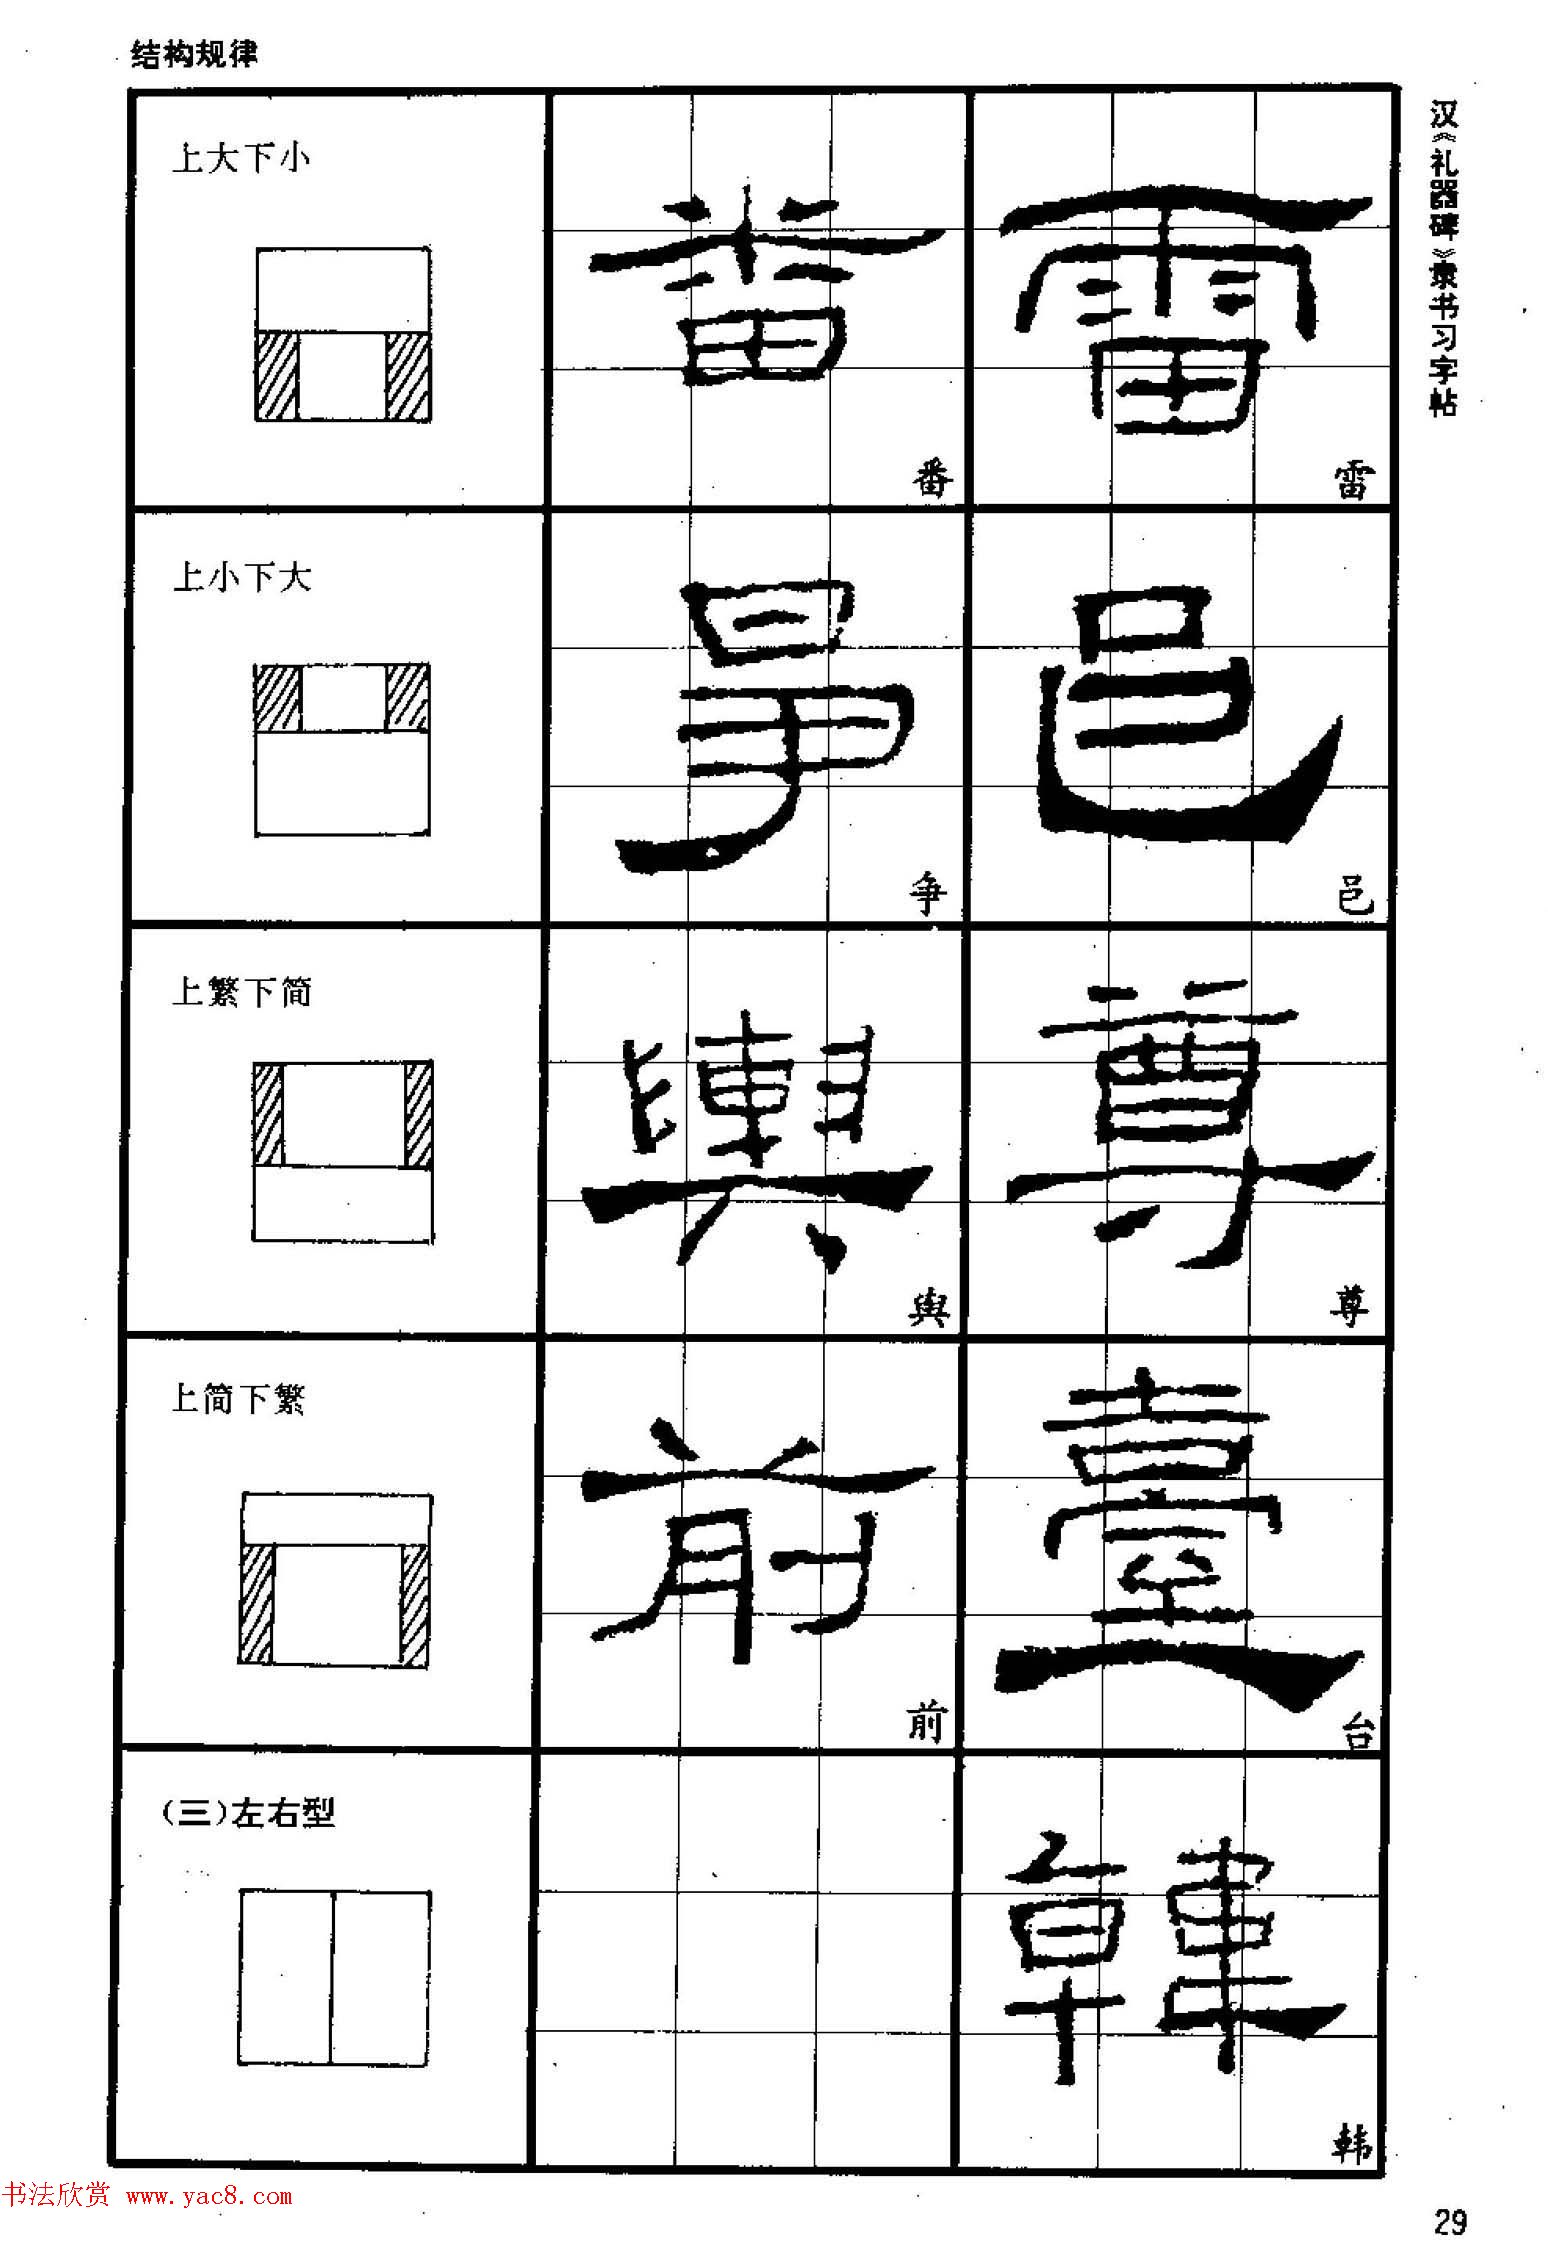 结构规律
汉《礼器碑》隶书习字帖
上大下小
番
雷
上小下大
争
邑
上繁下简
舆
尊
上简下繁
前
台
(三)左右型
韩
书法欣赏 www.yac8.com
29